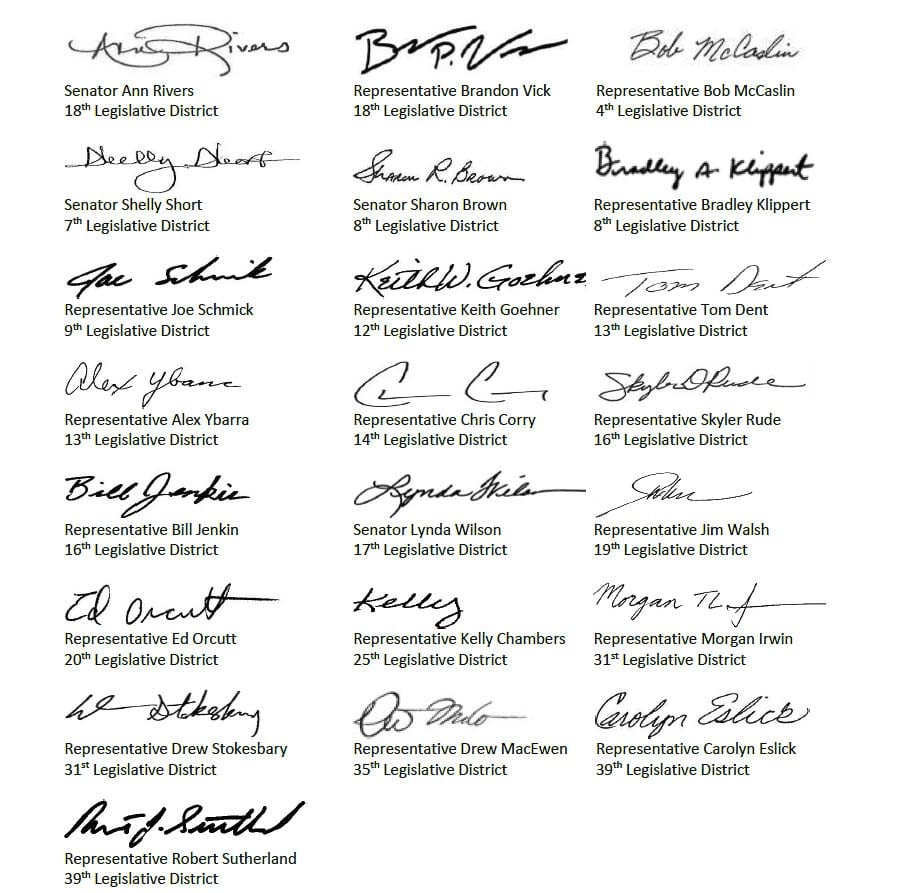 Ann Rivers
Senator Ann Rivers
18th Legislative District
B P. V
Representative Brandon Vick
18th Legislative District
Bob McCaslin
Representative Bob McCaslin
4th Legislative District
Shelly Short
Senator Shelly Short
7th Legislative District
Sharon R. Brown
Senator Sharon Brown
8th Legislative District
Bradley A Klippert
Representative Bradley Klippert
8th Legislative District
Joe Schmick
Representative Joe Schmick
9th Legislative District
Keith W. Goehner
Representative Keith Goehner
12th Legislative District
Tom Dent
Representative Tom Dent
13th Legislative District
Alex Ybarra
Representative Alex Ybarra
13th Legislative District
C C
Representative Chris Corry
14th Legislative District
Skyler D Rude
Representative Skyler Rude
16th Legislative District
Bill Jenkin
Representative Bill Jenkin
16th Legislative District
Lynda Wilson
Senator Lynda Wilson
17th Legislative District
Representative Jim Walsh
19th Legislative District
Ed Orcutt
Representative Ed Orcutt
20th Legislative District
Kelly
Representative Kelly Chambers
25th Legislative District
Morgan
Representative Morgan Irwin
31st Legislative District
Stokesbary
Representative Drew Stokesbary
31st Legislative District
Representative Drew MacEwen
35th Legislative District
Carolyn Eslick
Representative Carolyn Eslick
39th Legislative District
J. Sutherland
Representative Robert Sutherland
39th Legislative District